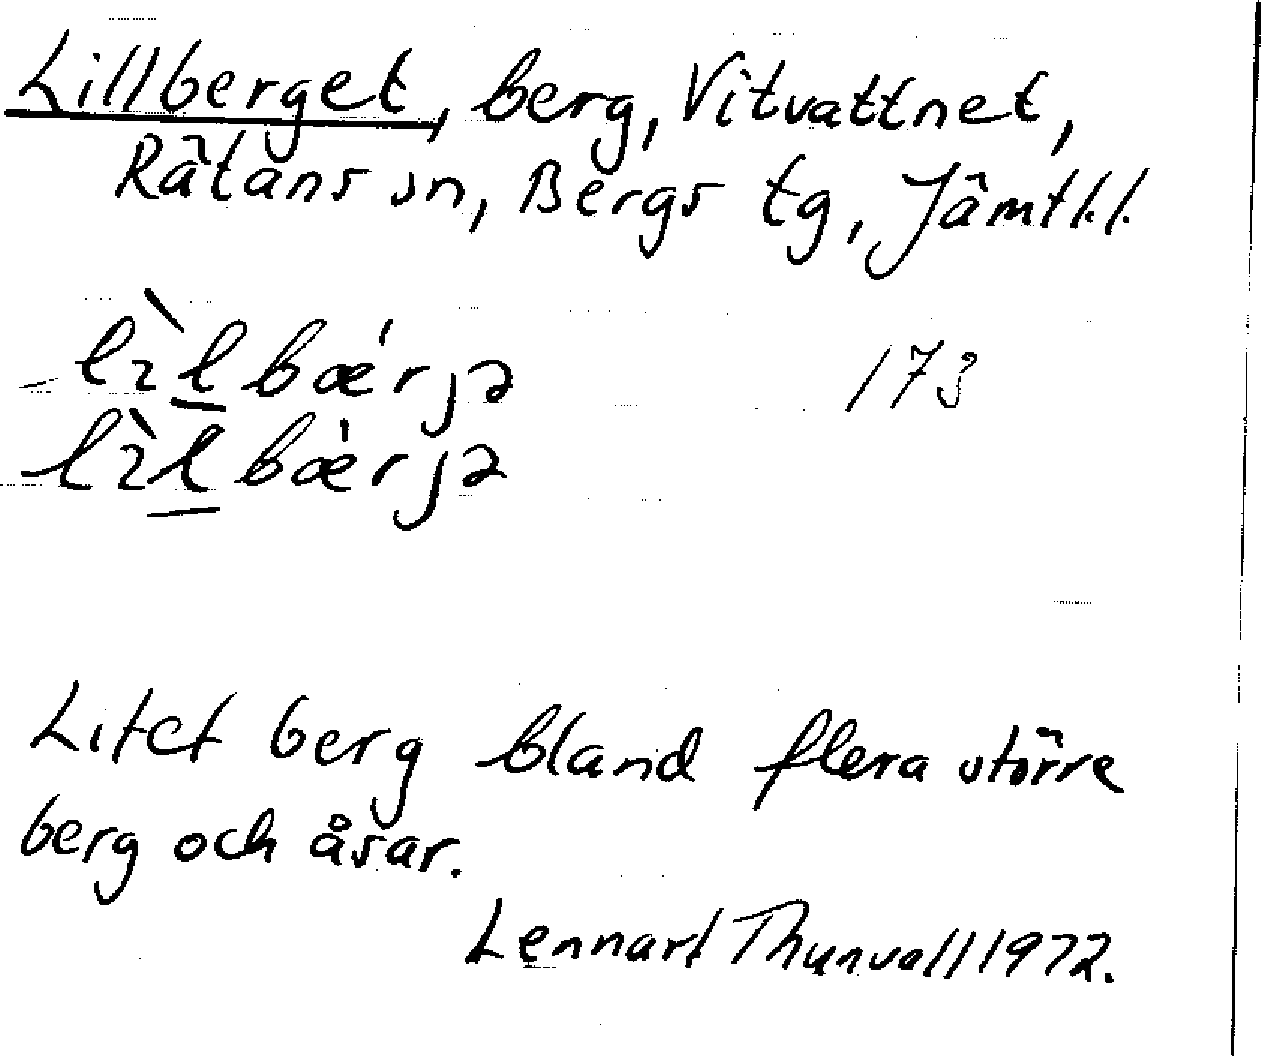 Lillberget, berg, Vitvattnet,
Rätans sn, Bergs tg, Jämtl.l.
lìlbǽrjə 173
lìlbǽrjə
Litet berg bland flera större
berg och åsar.
Lennart Thunvall 1972.